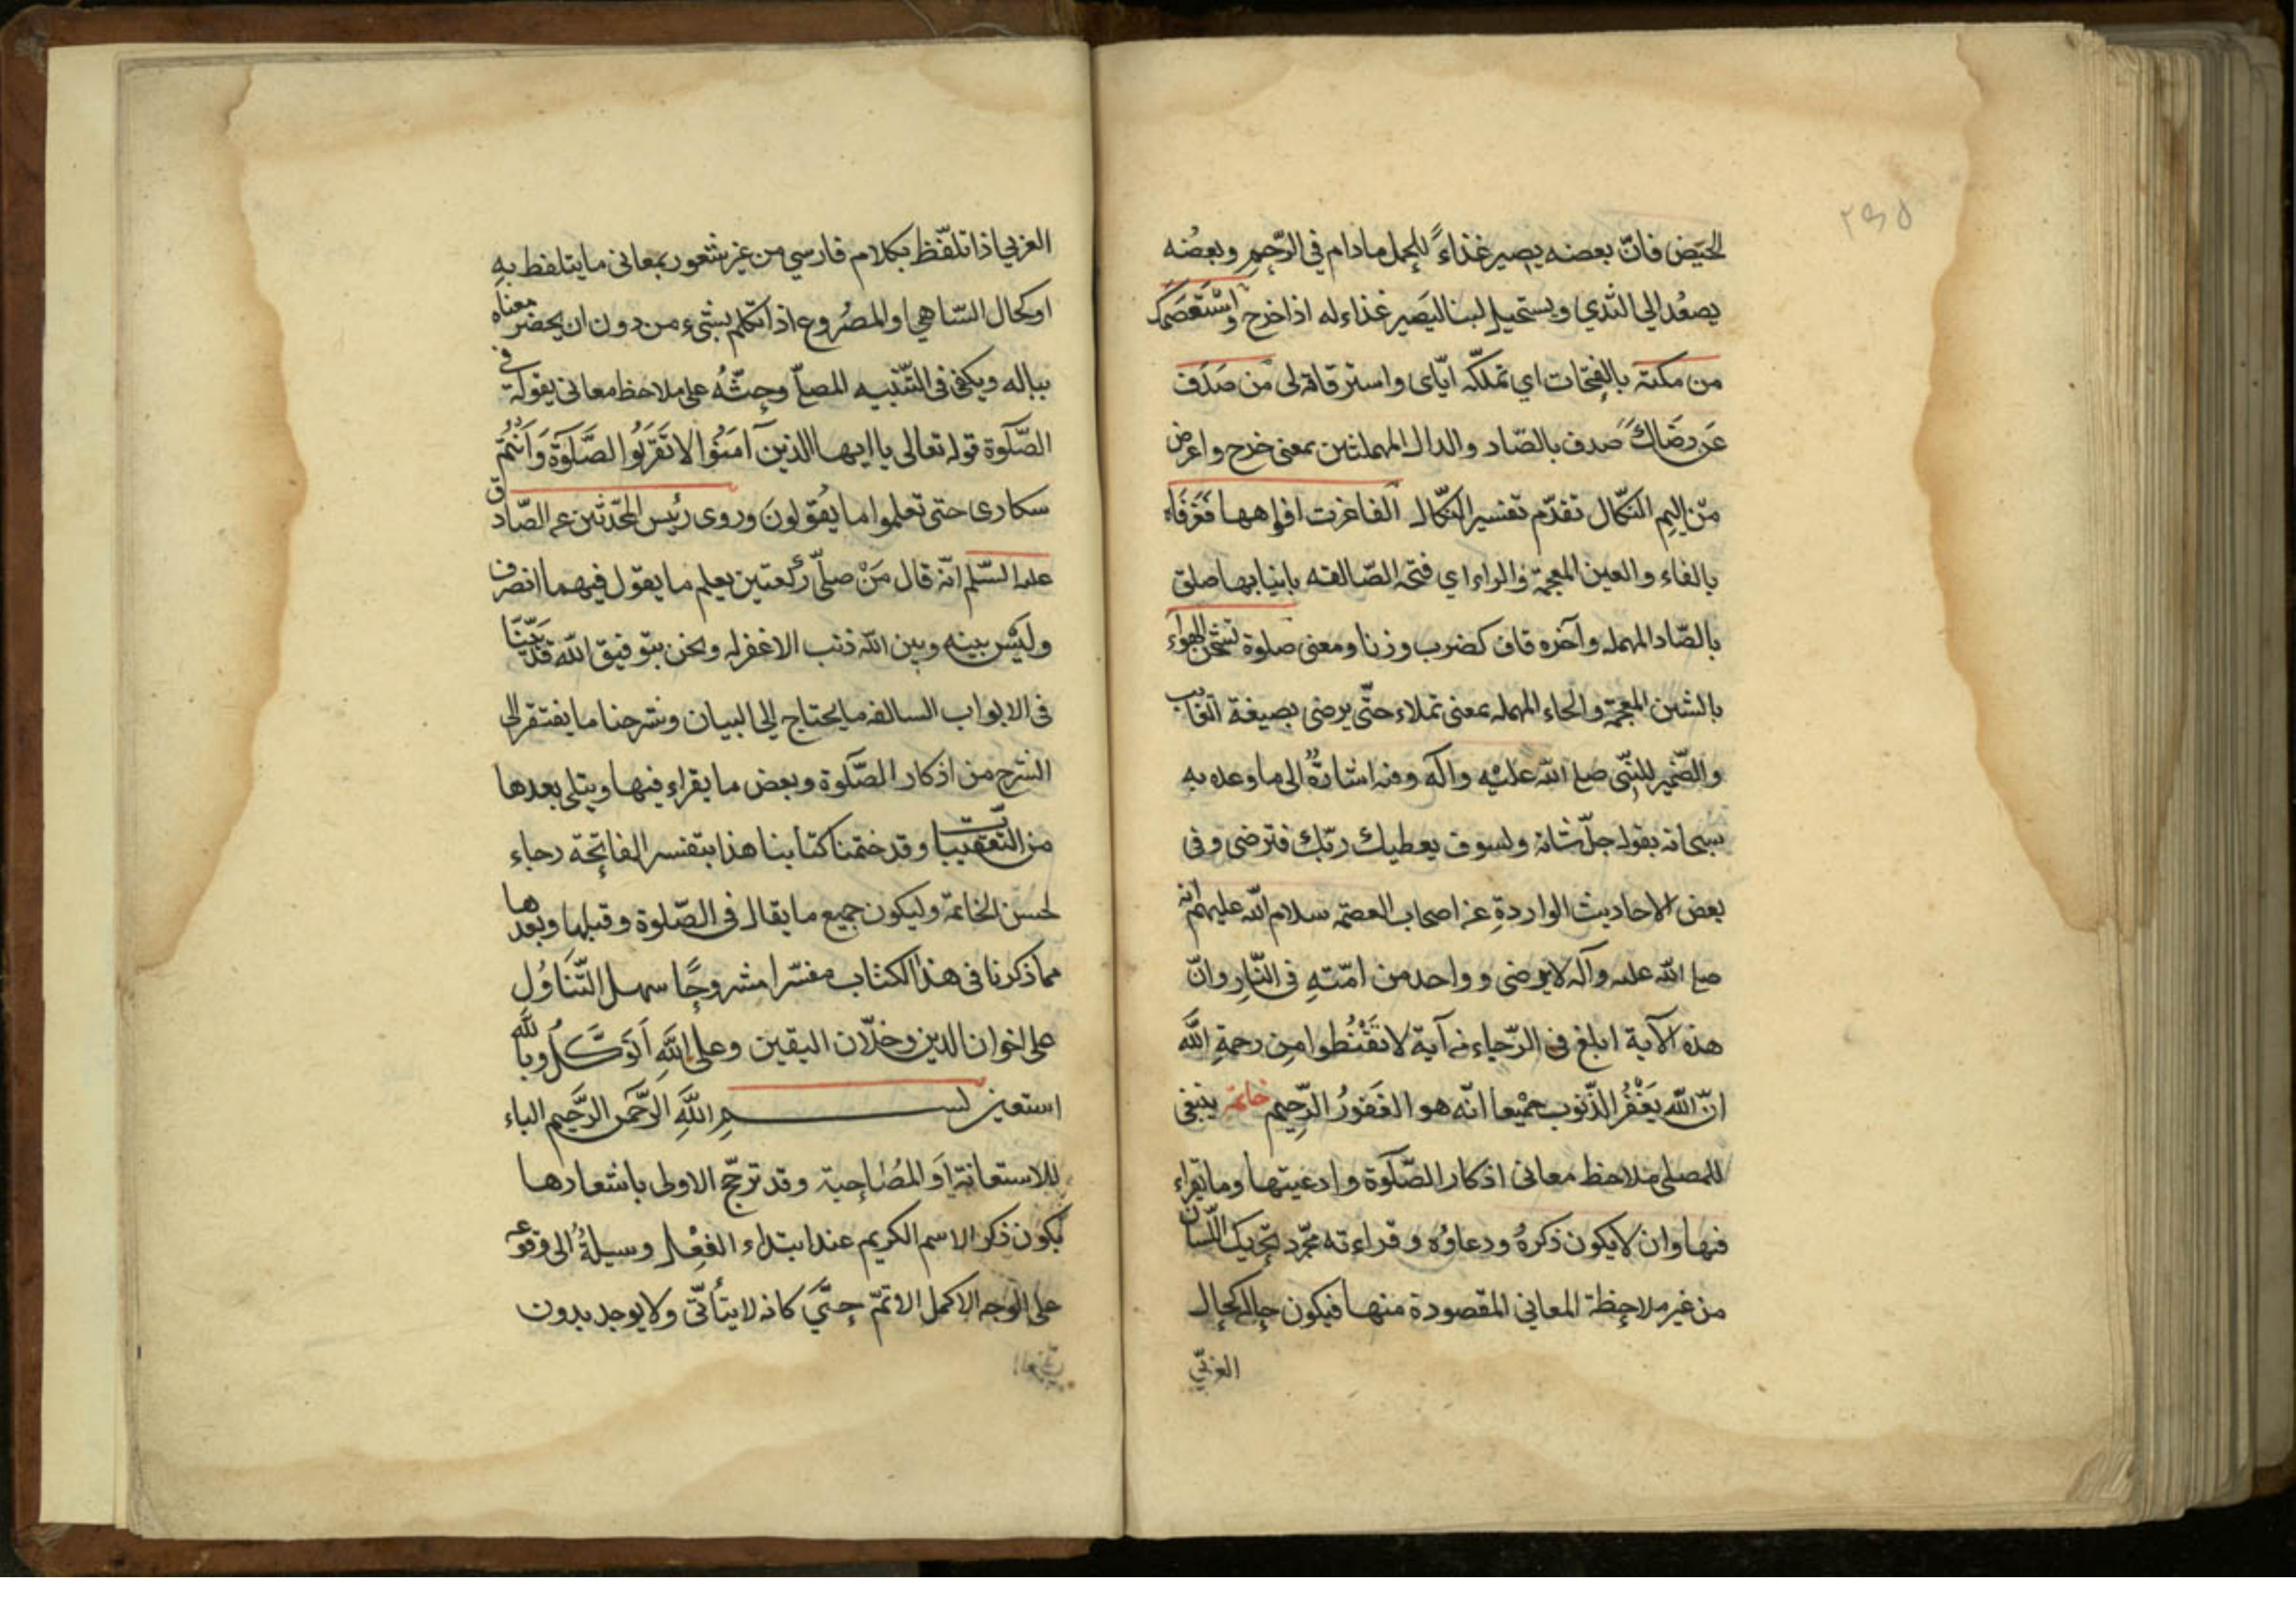 ٢٩٥
الحيض فانّ بعضه يصير غذاءً للحمل مادام في الرّحِم وبعضُه
يصعُد الي الثدي ويستحيل لبنا ليَصير غذاء له اذا خرج واستعصَمَك
من مَلكته بالفتحات اي تملكّه ايّاى واسترقاقه لى من صَدَف
عَن رضاكَ صدف بالصّاد والدال المهملتين بمعنى خرج واعرض
من اليم النكّال تقدّم تفسير النكّال الفاغرت افواهها فغرفاه
بالفاء والغين المعجمة والراء اي فتحه الصّالقه بانيابها صلق
بالصّاد المهمله وآخره قاف كضرب وزنا ومعنى صلوة تشحن الهواء
بالشين المعجمة والحاء المهمله بمعنى تملاء حتّى يرضى بصيغة الغايب
والضّمير للنّبِى صلع الله عليْه وآله وفيه اشارةٌ الى ما وعده به
سبحانه بقوله جلّ شانه ولسوف يعطيك ربّك فترضى وفى
بعض الاحاديث الواردةِ عن اصحاب العصمة سلام الله عليهم انه
صلع الله عليه وآله لا يرضى وواحد من امّتهِ فى النّارِ وانّ
هذه الآية ابلغ فى الرّجاء من آية لا تقْنُطوا مِن رحمةِ اللَّه
انّ اللَّه يَغْفُر الذّنوب جمْيعا انّه هو الغَفورُ الرّحِيم خاتمة ينبغى
للمصلى ملاحظ معانى اذكار الصّلوة وادعيتها وما يقراء
فيها وان لا يكون ذكرهُ ودعاؤه وقراءته مجّرد تحريك اللّسان
من غير ملاحظة المعاني المقصودة منها فيكون حاله كحال
العربّي
العربي اذا تلفّظ بكلام فارسي من غير شعور بمعانى ما يتلفظ بهِ
او كحال السّاهي والمصْروع اذا تكلم بشئ من دون ان يحضر معناه
بباله ويكفى فى التّنبيه المصلّ وحثّه على ملاحظ معانى يقوله في
الصّلوة قوله تعالى يا ايها الذينَ آمَنُوا لا تَقرَبُوا الصَّلَوةَ وَاَنْتُم
سكارى حتى تعلموا ما يقُولونَ وروى رئيس المحّدثين عن الصّادق
عليه السّلم انّه قال مَنْ صلّى ركعتين يعلم ما يقول فيهما انصرف
وليْس بينه وبين الله ذنب الا غفر له ونحن بتوفيق الله قد بيّنّا
فى الابواب السالفه ما يحتاج الى البيان وشرحنا ما يفتقر الى
الشرح من اذكار الصّلوة وبعض ما يقراء فيها ويتلى بعدها
من التعقيبات وقد ختمنا كتابنا هذا بتفسير الفاتحة رجاء
لحسن الخاتمة وليكون جميع ما يقال فى الصّلوة وقبلها وبعدها
مما ذكرنا فى هذا الكتاب مفسّرا مشروحًا سهل التّنَاوُل
على اخوان الدين وخلّان اليقين وعلى اللَّهِ اَتَوَكَّلُ وباللّه
استعين بســـم اللَّهِ الرّحمن الرَّحيم الباء
للاستعانة اَو المُصَاحبة وقد ترجّح الاولى باشعارها
بكون ذكر الاسم الكريم عند ابتداء الفِعْل وسيلةً الى وقوعه
على الوجه الاكمل الاتمّ حتّي كانه لا يتأتّى ولا يوجد بدون